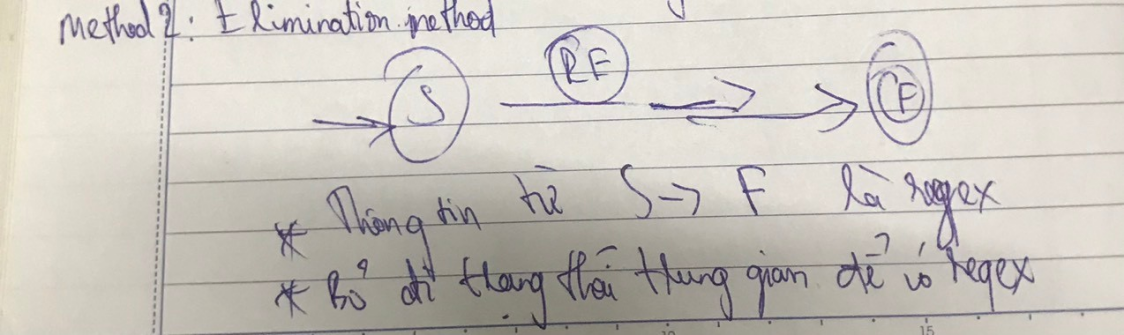 Method 2: Elimination method
S RE F
* Thông tin từ S → F là regex
* Bỏ đi trạng thái trung gian để có regex
15